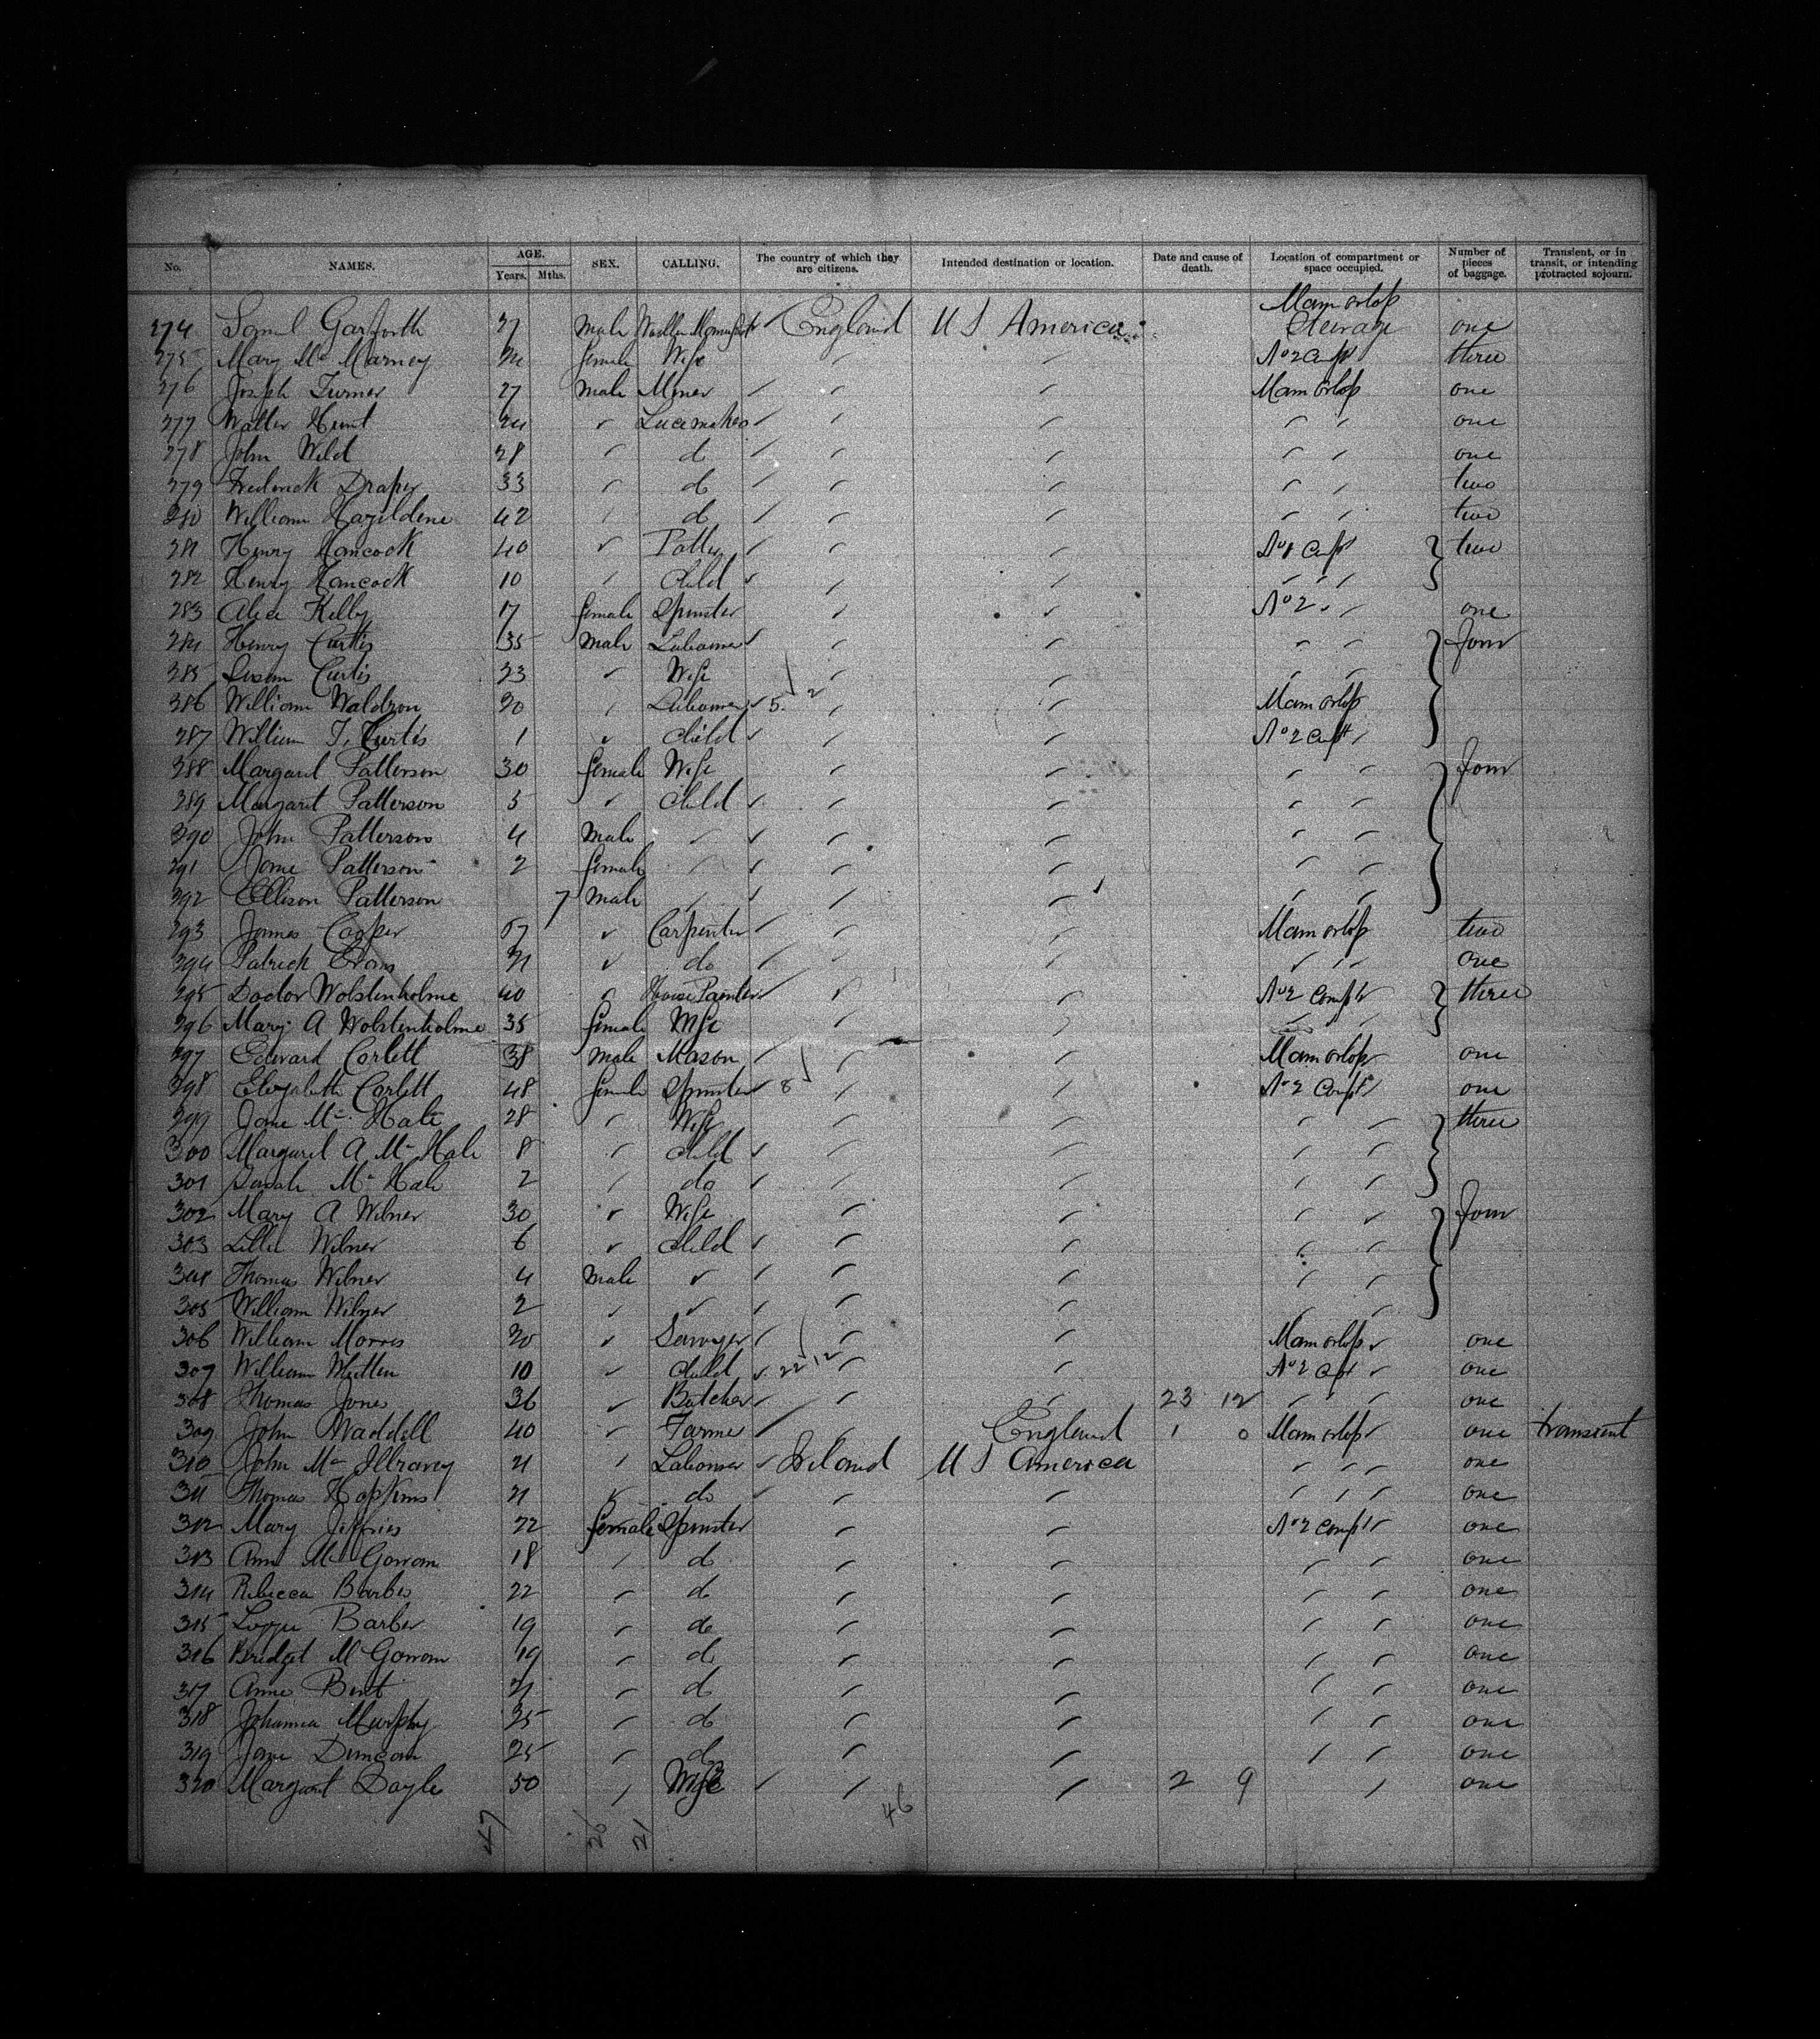 No. NAMES. AGE. Years. Mths. SEX. CALLING. The country of which they are citizens. Intended destination or location. Date and cause of death. Location of compartment or space occupied. Number of pieces of baggage. Transient, or in transit, or intending protracted sojourn.
274 Saml Garforth 27 Male Woollen England U S America Main orlop Steerage one
275 Mary Mc Marney 24 female Wife No 2 Compt three
276 Joseph Turner 27 Male Miner Main orlop one
277 Walter Hunt 24 Lacemaker one
278 John Wild 28 do one
279 Frederick Draper 33 do two
280 William Hazildene 42 do two
281 Henry Hancock 40 Potter No 1 Compt two
282 Henry Hancock 10 Child
283 Alice Kelly 17 female Spinster No 2 one
284 Henry Curtis 35 Male Labourer four
285 Susan Curtis 23 Wife
286 William Waldron 20 Labourer 5 2 Main orlop
287 William T. Curtis 1 Child No 2 Compt
288 Margaret Patterson 30 female Wife four
289 Margaret Patterson 5 Child
290 John Patterson 4 Male
291 Jane Patterson 2 female
292 Ellison Patterson 7 Male
293 James Cooper 57 Carpenter Main orlop two
294 Patrick Evans 21 do one
295 Doctor Wolstenholme 40 House Painter No 2 Compt three
296 Mary A Wolstenholme 35 female Wife
297 Edward Corlett 38 Male Mason Main orlop one
298 Elizabeth Corlett 48 female Spinster 8 No 2 Compt one
299 Jane Mc Hale 28 Wife three
300 Margaret A Mc Hale 8 Child
301 Sarah Mc Hale 2 do
302 Mary A Wilner 30 Wife four
303 Lillie Wilner 6 Child
304 Thomas Wilner 4 Male
305 William Wilner 2
306 William Morris 20 Sawyer Main orlop one
307 William Mutten 10 Child 22 12 No 2 Compt one
308 Thomas Jones 36 Butcher 23 12 one
309 John Waddell 40 Farmer England 1 0 Main orlop one transient
310 John Mc Ilravey 21 Labourer Ireland U S America one
311 Thomas Hopkins 21 do one
312 Mary Jeffries 22 female Spinster No 2 Compt one
313 Ann Mc Gowan 18 do one
314 Rebecca Barber 22 do one
315 Lizzie Barber 19 do one
316 Bridget Mc Gowan 19 do one
317 Anne Bent 21 do one
318 Johanna Murphy 25 do one
319 Jane Duncan 25 do one
320 Margaret Doyle 50 Wife 2 9 one
47 26 21 46